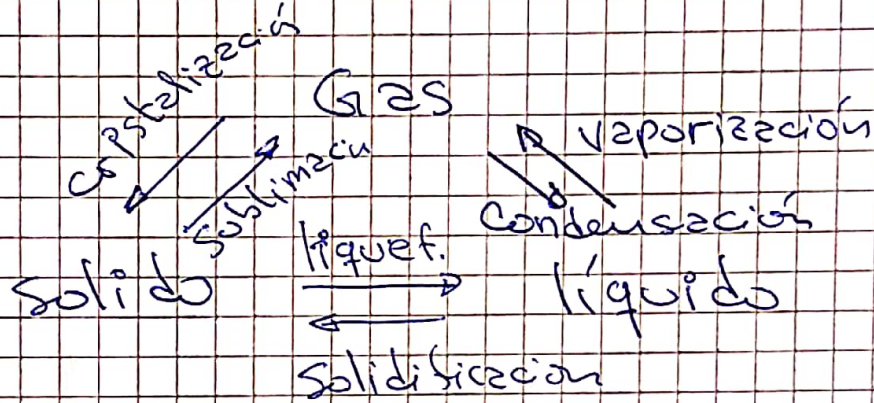 cristalización
Gas
Sublimación
vaporización
Condensación
liquef.
Solido
líquido
Solidificacion